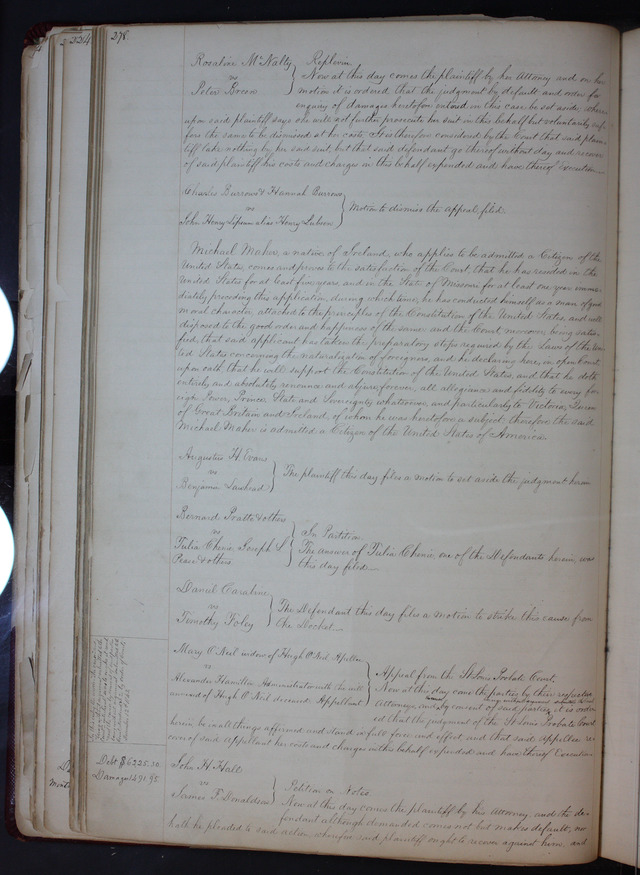 278.
Rosaline McNalty } Replevin
vs Now at this day comes the plaintiff by her Attorney and on her
Peter Breen motion it is ordered that the judgment by default and order for
enquiry of damages heretofore entered in this case be set aside. where
upon said plaintiff says she will not further prosecute her suit in this behalf but voluntarily suf
fers the same to be dismissed at her costs. It is therefore considered by the Court that said plain
tiff take nothing by her said suit, but that said defendant go thereof without day and recover
of said plaintiff his costs and charges in this behalf expended and have thereof Execution
Charles Burrows & Hannah Burrows
vs } Motion to dismiss the appeal filed.
John Henry alias Henry
Michael Maher, a native of Ireland, who applies to be admitted a Citizen of the
United States, comes and proves to the satisfaction of the Court, that he has resided in the
United States for at least five years, and in the State of Missouri for at least one year imme
diately preceding this application, during which time, he has conducted himself as a man of good
moral character, attached to the principles of the Constitution of the United States, and well
disposed to the good order and happiness of the same: and the Court, moreover, being satis
fied, that said applicant has taken the preparatory steps required by the Laws of the Uni
ted States concerning the naturalization of foreigners, and he declaring here, in open Court,
upon oath that he will support the Constitution of the United States, and that he doth
entirely and absolutely renounce and abjure forever, all allegiance and fidelity to every for
eign Power, Prince, State and Sovereignty whatsoever, and particularly to Victoria, Queen
of Great Britain and Ireland, of whom he was heretofore a subject: therefore the said
Michael Maher is admitted a Citizen of the United States of America.
Augustus H Evans
vs } The plaintiff this day files a motion to set aside the judgment herein
Benjamin Lawhead
Bernard Pratte & others
vs } In Partition.
Julia Chenie, Joseph S The answer of Julia Chenie, one of the Defendants herein, was
Pease & others this day filed.
Daniel Caroline
vs } The Defendant this day files a motion to strike this cause from
Timothy Foley the Docket.
Mary O'Neil widow of Hugh O'Neil Apellee
vs } Appeal from the St Louis Probate Court.
Alexander Hamilton Administrator with the will Now at this day come the parties by their respective
annexed of Hugh O'Neil deceased Appellant Attorneys and by consent of said parties, it is order
ed that the judgment of the St Louis Probate Court
herein be in all things affirmed and stand in full force and effect and that said appellee re
cover of said appellant her costs and charges in this behalf expended and have thereof Execution
Debt $6225.50
Damages $491.95
John H Hall
vs } Petition on Notes
James F. Donaldson Now at this day comes the plaintiff by his Attorney, and the de
fendant although demanded comes not but makes default, nor
hath he pleaded to said action, wherefore said plaintiff ought to recover against him, and